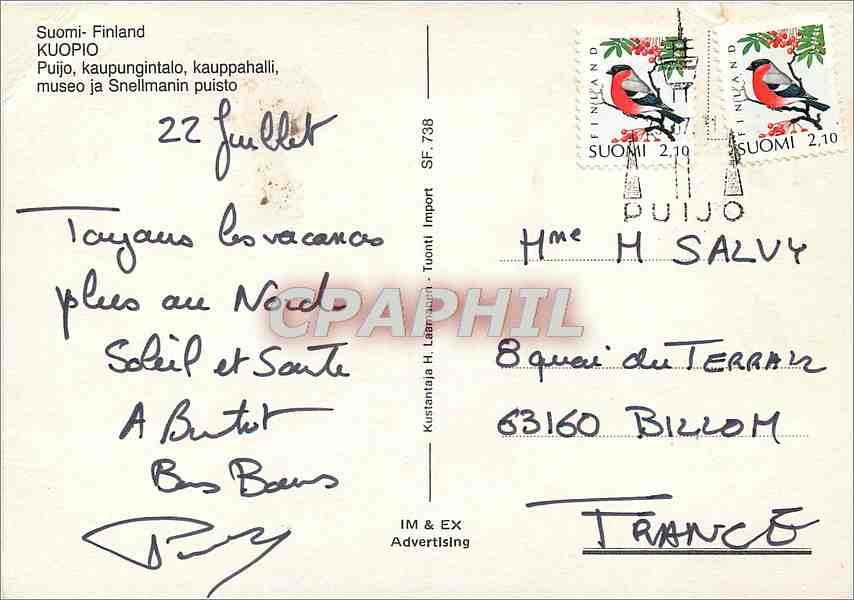 Suomi- Finland
KUOPIO
Puijo, kaupungintalo, kauppahalli,
museo ja Snellmanin puisto
22 Juillet
Toujours les vacances
plus au Nord
Soleil et Santé
A Bientot
Bons Baisers
Kustantaja H. Laamanen - Tuonti Import SF. 738
IM & EX
Advertising
FINLAND
SUOMI 2,10
FINLAND
SUOMI 2,10
PUIJO
Mme M SALVY
8 quai du TERRAIL
63160 BILLOM
FRANCE
CPAPHIL